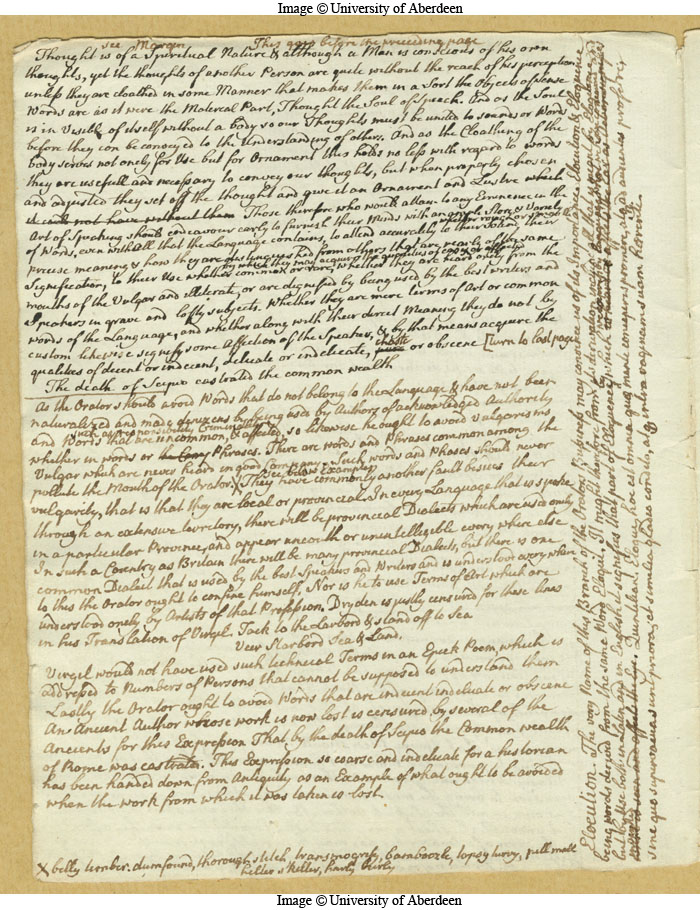 Image © University of Aberdeen
see Margin This goes before the preceding page
Thought is of a Spiritual Nature & although a Man is conscious of his own
thoughts, yet the thoughts of another Person are quite without the reach of his perception
unless they are cloathed in some Manner that makes them in a Sort the Objects of Sense
Words are as it were the Material Part, Thought the Soul of Speach. And as the Soul
is in Visible of itself without a body so our Thoughts must be united to sounds or Words
before they can be conveyed to the Understanding of others. And as the Cloathing of the
body serves not onely for Use but for Ornament this holds no less with regard to words
they are usefull and necessary to convey our thoughts, but when properly chosen
and adjusted they set off the thought and give it an Ornament and Lustre which
it could not have without them Those therefore who would attain to any Eminence in the
Art of Speaking should endeavour early to furnish their Minds with an ample Store & Variety
of Words, even with all that the Language contains, to attend accurately to their Sound, their
precise meaning & how they are distinguished from others that are nearly of the same
by which they may acquire the qualities of
Signification, to their Use whether common or rare, whether they are heard onely from the
mouths of the Vulgar and illiterate, or are dignified by being used by the best writers and
Speakers in grave and lofty subjects. Whether they are mere terms of Art or common
words of the Language, and whether along with their direct Meaning they do not by
custom likewise signify some Affection of the Speaker, & by that means acquire the
qualities of decent or indecent, delicate or indelicate, chaste or obscene [turn to last page
The death of Scipio castrated the common wealth
As the Orator should avoid Words that do not belong to the Language & have not been
naturalized and made denizens by being used by Authors of acknowledged Authority
and Words that are uncommon, & affected, so likewise he ought to avoid Vulgarisms
whether in words or Phrases. There are words and Phrases common among the
Vulgar which are never heard in good Company. Such words and Phases should never
see below Examples
pollute the Mouth of the Orator. X They have commonly another fault besides their
vulgarity, that is that they are local or provincial. In every Language that is spoke
through an extensive territory, there will be provincial Dialects which are used onely
in a particular Province, and appear uncouth or unintelligible every where else
In such a Country as Britain there will be many provincial Dialects, but there is one
common Dialect that is used by the best Speakers and Writers and is understood every where
to this the Orator ought to confine himself, Nor is he to use Terms of Art which are
understood onely by Artists of that Profession, Dryden is justly censured for these lines
in his Translation of Virgil Tack to the Larbord & stand off to Sea
Veer Starbord Sea & Land.
Virgil would not have used such technical Terms in an Epick Poem, which is
addressed to Numbers of Persons that cannot be supposed to understand them
Lastly the Orator ought to avoid Words that are indecent indelicate or obscene
An Ancient Author whose work is now lost is censured by several of the
Ancients for this Expression That by the death of Scipio the Common wealth
of Rome was castrata. This Expression so coarse and indelicate for a historian
has been handed down from Antiquity as an Example of what ought to be avoided
when the work from which it was taken is lost.
X belly timber. dumfound, thorough stitch, transmogrify, bamboozle, topsy turvy, pell mell
helter skelter, hurly burly
Elocution. The very Name of this Branch of the Orators Business may convince us of its Importance Elocution & Eloquence
being words derived from the same Word Eloqui.
but by Use both in Latin and in English it signifies that part of Eloquence which
Quintilian. Eloqui, hoc est omnia quæ mente conceperis promere, atque ad audientes proferre,
sine quo supervacua sunt priora, et similia gladio condito, atque intra vaginam suam hærenti
Image © University of Aberdeen